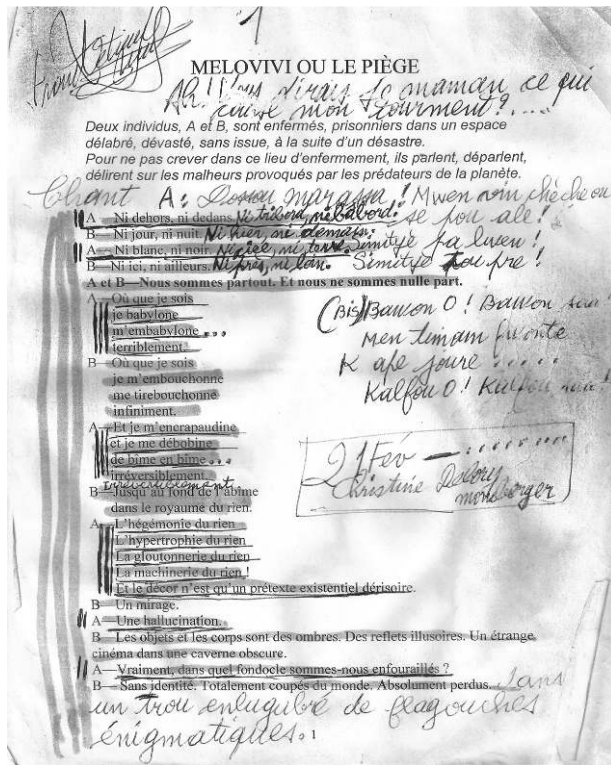 1
MELOVIVI OU LE PIÈGE
Ah! Vous dirais-je maman ce qui
cause mon tourment?....
Deux individus, A et B, sont enfermés, prisonniers dans un espace
délabré, dévasté, sans issue, à la suite d'un désastre.
Pour ne pas crever dans ce lieu d'enfermement, ils parlent, déparlent,
délirent sur les malheurs provoqués par les prédateurs de la planète.
Chant A: Dosou marasa! Mwen vin chèche ou
A – Ni dehors, ni dedans. Ni tribord, ni bâbord. se pou ale!
B – Ni jour, ni nuit. Ni hier, ni demain.
A – Ni blanc, ni noir. Ni ciel, ni terre. Simityè pa lwen!
B – Ni ici, ni ailleurs. Ni près, ni loin. Simityè tou pre!
A et B—Nous sommes partout. Et nous ne sommes nulle part.
A – Où que je sois
je babylone
m'embabylone ...
terriblement.
(Bis) Bawon O! Bawon
Men timoun
K ape joure .....
Kalfou O! Kalfou
B – Où que je sois
je m'embouchonne
me tirebouchonne
infiniment.
A – Et je m'encrapaudine
et je me débobine
de bime en bime ...
irréversiblement.
irréversiblement.
21 Fév
Christine Delory
momberger
B – Jusqu'au fond de l'abîme
dans le royaume du rien.
A – L'hégémonie du rien
L'hypertrophie du rien
La gloutonnerie du rien
La machinerie du rien !
Et le décor n'est qu'un prétexte existentiel dérisoire.
B – Un mirage.
A – Une hallucination.
B – Les objets et les corps sont des ombres. Des reflets illusoires. Un étrange
cinéma dans une caverne obscure.
A—Vraiment, dans quel fondocle sommes-nous enfouraillés ?
B—Sans identité. Totalement coupés du monde. Absolument perdus. dans
un trou enlugubré de flagouches
énigmatiques. 1